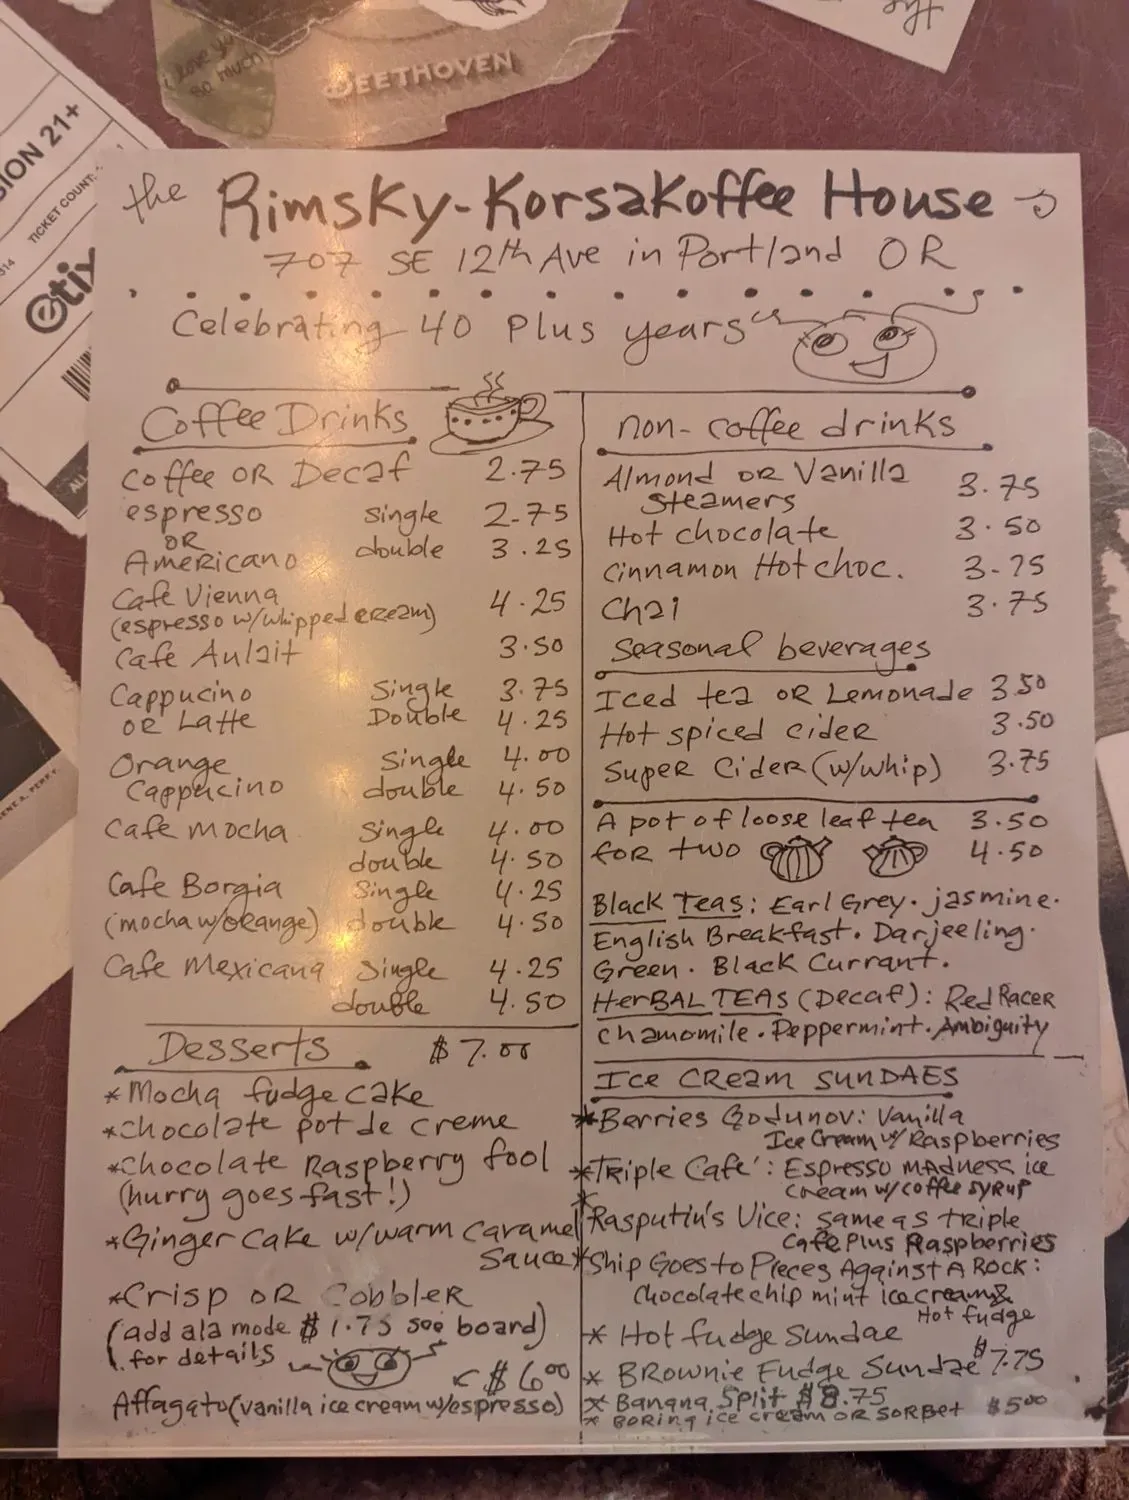 i love you
so much
BEETHOVEN
SION 21+
TICKET COUNT:
etix
the Rimsky-Korsakoffee House
707 SE 12th Ave in Portland OR
Celebrating 40 Plus years
Coffee Drinks
Coffee OR Decaf 2.75
espresso single 2.75
OR
Americano double 3.25
Café Vienna 4.25
(espresso w/whipped cream)
Cafe Aulait 3.50
Cappucino Single 3.75
or Latte Double 4.25
Orange Single 4.00
Cappucino double 4.50
Cafe mocha Single 4.00
double 4.50
Cafe Borgia Single 4.25
(mocha w/orange) double 4.50
Cafe Mexicana Single 4.25
double 4.50
Desserts $7.00
*Mocha fudge cake
*chocolate pot de creme
*chocolate Raspberry fool
(hurry goes fast!)
*Ginger cake w/warm caramel
sauce
*Crisp or Cobbler
(add ala mode $1.75 see board)
for details
$6.00
Affagato (vanilla ice cream w/espresso)
non-coffee drinks
Almond or Vanilla 3.75
Steamers
Hot chocolate 3.50
Cinnamon Hot choc. 3.75
Chai 3.75
Seasonal beverages
Iced tea or Lemonade 3.50
Hot spiced cider 3.50
Super Cider (w/whip) 3.75
A pot of loose leaf tea 3.50
for two 4.50
Black Teas: Earl Grey. jasmine.
English Breakfast. Darjeeling.
Green. Black Currant.
HerBAL TEAs (Decaf): Red Racer
chamomile. Peppermint. Ambiguity
Ice Cream SUNDAES
*Berries Godunov: Vanilla
Ice Cream w/ Raspberries
*Triple Cafe': Espresso madness ice
cream w/coffee syrup
*Rasputin's Vice: same as triple
cafe plus Raspberries
*Ship Goes to Pieces Against A Rock:
chocolate chip mint ice cream &
Hot fudge
* Hot fudge Sundae
* Brownie Fudge Sundae $7.75
* Banana Split $8.75
* Boring ice cream or sorbet $5.00